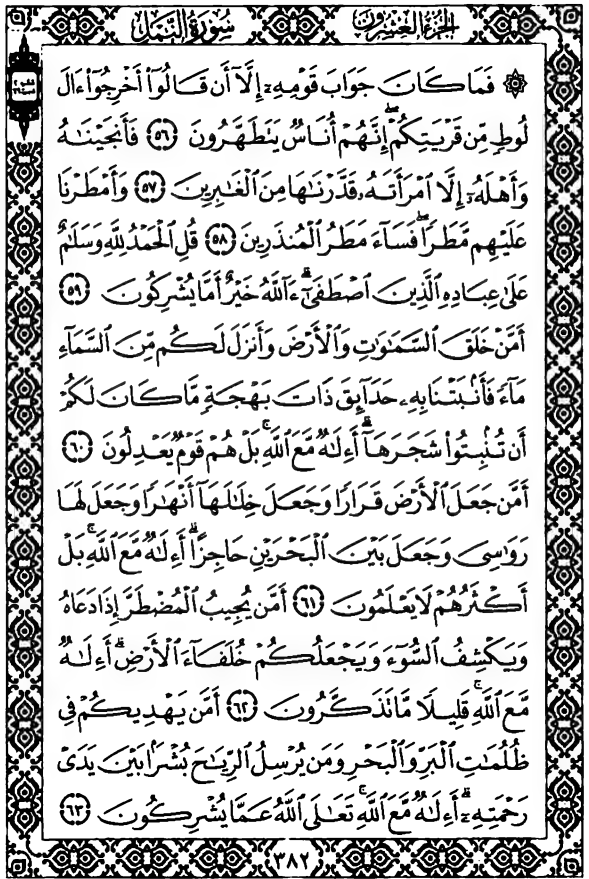 الجزء العشرون سورة النمل
۞ فَمَا كَانَ جَوَابَ قَوْمِهِۦٓ إِلَّآ أَن قَالُوٓا۟ أَخْرِجُوٓا۟ ءَالَ
لُوطٍ مِّن قَرْيَتِكُمْ ۖ إِنَّهُمْ أُنَاسٌ يَتَطَهَّرُونَ ﴿٥٦﴾ فَأَنجَيْنَـٰهُ
وَأَهْلَهُۥٓ إِلَّا ٱمْرَأَتَهُۥ قَدَّرْنَـٰهَا مِنَ ٱلْغَـٰبِرِينَ ﴿٥٧﴾ وَأَمْطَرْنَا
عَلَيْهِم مَّطَرًا ۖ فَسَآءَ مَطَرُ ٱلْمُنذَرِينَ ﴿٥٨﴾ قُلِ ٱلْحَمْدُ لِلَّهِ وَسَلَـٰمٌ
عَلَىٰ عِبَادِهِ ٱلَّذِينَ ٱصْطَفَىٰٓ ۗ ءَآللَّهُ خَيْرٌ أَمَّا يُشْرِكُونَ ﴿٥٩﴾
أَمَّنْ خَلَقَ ٱلسَّمَـٰوَٰتِ وَٱلْأَرْضَ وَأَنزَلَ لَكُم مِّنَ ٱلسَّمَآءِ
مَآءً فَأَنۢبَتْنَا بِهِۦ حَدَآئِقَ ذَاتَ بَهْجَةٍ مَّا كَانَ لَكُمْ
أَن تُنۢبِتُوا۟ شَجَرَهَآ ۗ أَءِلَـٰهٌ مَّعَ ٱللَّهِ ۚ بَلْ هُمْ قَوْمٌ يَعْدِلُونَ ﴿٦٠﴾
أَمَّن جَعَلَ ٱلْأَرْضَ قَرَارًا وَجَعَلَ خِلَـٰلَهَآ أَنْهَـٰرًا وَجَعَلَ لَهَا
رَوَٰسِىَ وَجَعَلَ بَيْنَ ٱلْبَحْرَيْنِ حَاجِزًا ۗ أَءِلَـٰهٌ مَّعَ ٱللَّهِ ۚ بَلْ
أَكْثَرُهُمْ لَا يَعْلَمُونَ ﴿٦١﴾ أَمَّن يُجِيبُ ٱلْمُضْطَرَّ إِذَا دَعَاهُ
وَيَكْشِفُ ٱلسُّوٓءَ وَيَجْعَلُكُمْ خُلَفَآءَ ٱلْأَرْضِ ۗ أَءِلَـٰهٌ
مَّعَ ٱللَّهِ ۚ قَلِيلًا مَّا تَذَكَّرُونَ ﴿٦٢﴾ أَمَّن يَهْدِيكُمْ فِى
ظُلُمَـٰتِ ٱلْبَرِّ وَٱلْبَحْرِ وَمَن يُرْسِلُ ٱلرِّيَـٰحَ بُشْرًۢا بَيْنَ يَدَىْ
رَحْمَتِهِۦٓ ۗ أَءِلَـٰهٌ مَّعَ ٱللَّهِ ۚ تَعَـٰلَى ٱللَّهُ عَمَّا يُشْرِكُونَ ﴿٦٣﴾
٣٨٢